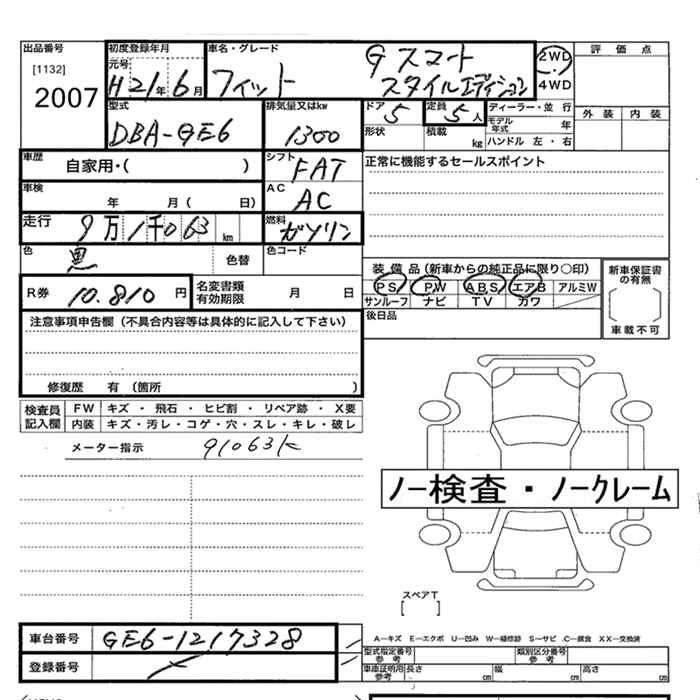 出品番号 初度登録年月 車名・グレード G スマート 2WD 評価点
[1132] 元号 H21年6月 フィット スタイルエディション 4WD
2007
型式 排気量又はkw ドア 5 定員 5人 ディーラー・並行 外装 内装
DBA-GE6 1300 形状 積載 kg モデル年式 年
ハンドル 左・右
車歴 自家用・( ) シフト FAT 正常に機能するセールスポイント
車検 年 月 ( 日) AC AC
走行 9万1千063 km 燃料 ガソリン
色 黒 色替 色コード
装備品 (新車からの純正品に限り○印) 新車保証書の有無
R券 10.810 円 名変書類有効期限 月 日 PS PW ABS エアB アルミW
サンルーフ ナビ TV カワ
車載不可
注意事項申告欄(不具合内容等は具体的に記入して下さい) 後日品
修復歴 有 (箇所 )
検査員記入欄 FW キズ・飛石・ヒビ割・リペア跡・X要
内装 キズ・汚レ・コゲ・穴・スレ・キレ・破レ
メーター指示 91063K
ノー検査・ノークレーム
スペアT
[ ]
車台番号 GE6-1217328
A－キズ E－エクボ U－凹み W－補修跡 S－サビ C－腐食 XX－交換済
登録番号
型式指定番号 参考 類別区分番号 参考
車庫証明用 参考 長さ cm 幅 cm 高さ cm